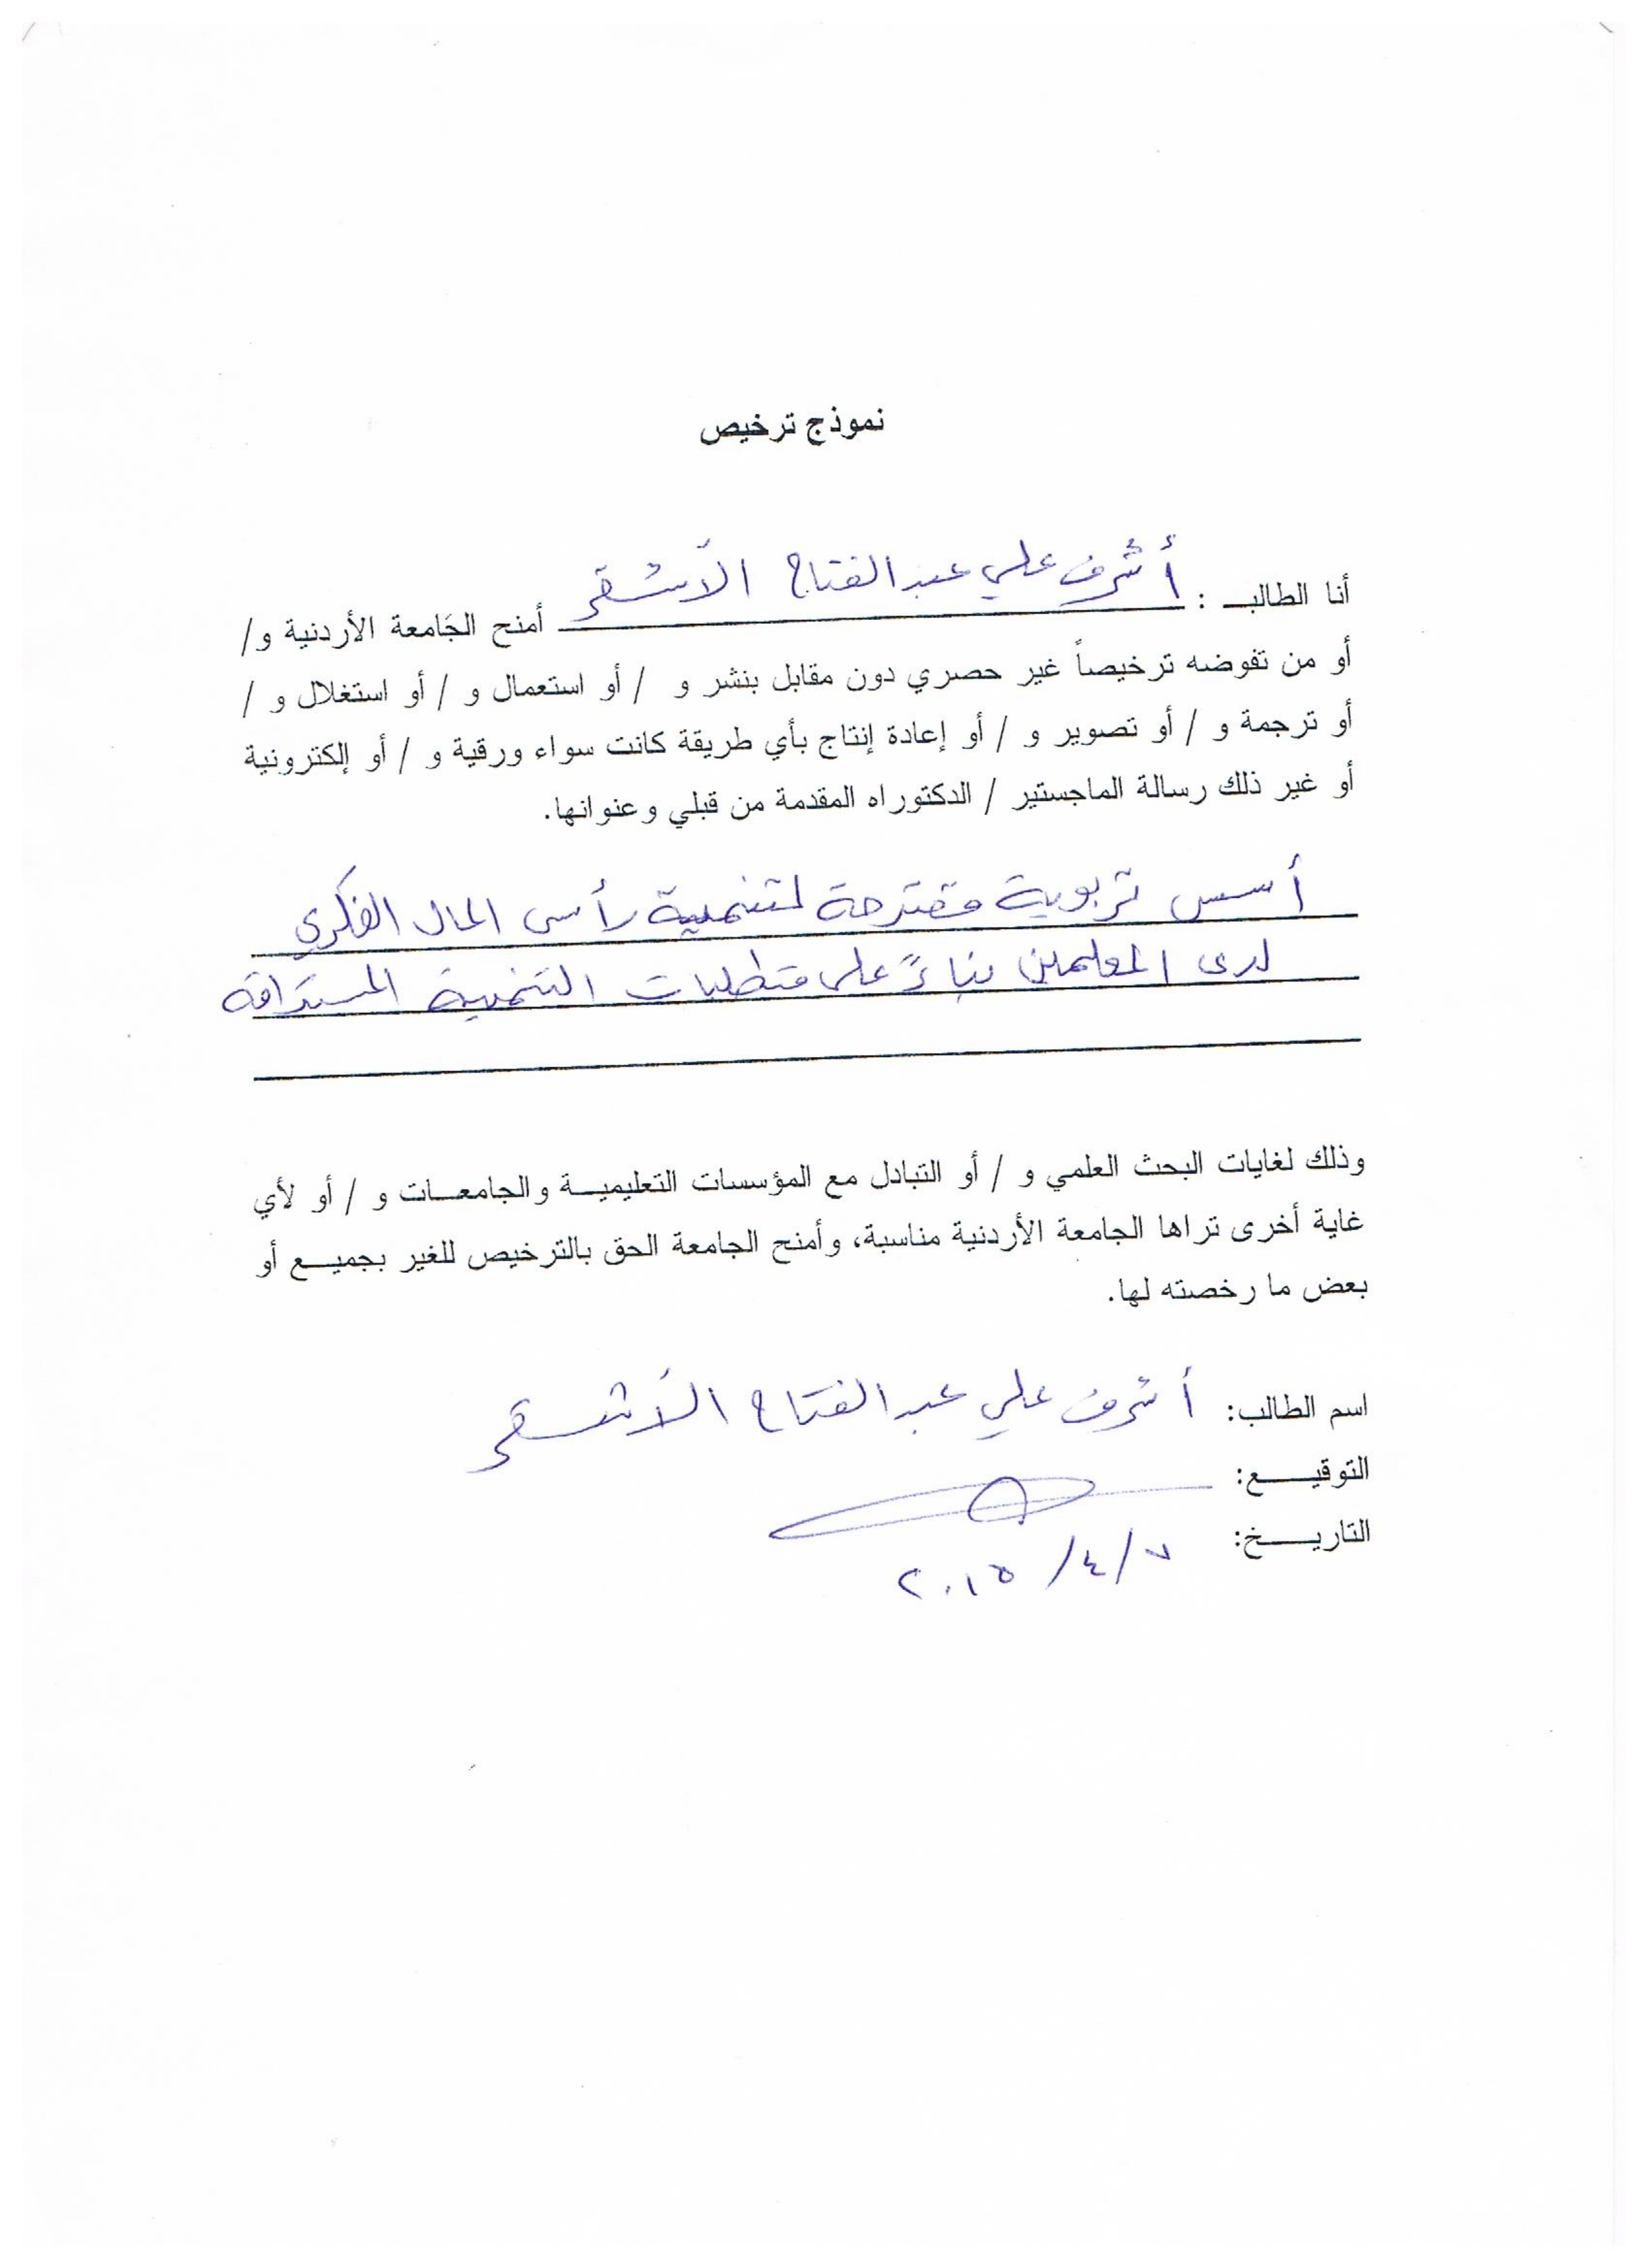 نموذج ترخيص
أنا الطالب : أشرف علي عبد الفتاح الأشقر أمنح الجامعة الأردنية و/
أو من تفوضه ترخيصاً غير حصري دون مقابل بنشر و / أو استعمال و / أو استغلال و /
أو ترجمة و / أو تصوير و / أو إعادة إنتاج بأي طريقة كانت سواء ورقية و / أو إلكترونية
أو غير ذلك رسالة الماجستير / الدكتوراه المقدمة من قبلي وعنوانها.
أسس تربوية مقترحة لتنمية رأس المال الفكري
لدى المعلمين بناءً على متطلبات التنمية المستدامة
وذلك لغايات البحث العلمي و / أو التبادل مع المؤسسات التعليمية والجامعات و / أو لأي
غاية أخرى تراها الجامعة الأردنية مناسبة، وأمنح الجامعة الحق بالترخيص للغير بجميع أو
بعض ما رخصته لها.
اسم الطالب: أشرف علي عبد الفتاح الأشقر
التوقيع:
التاريخ: ٧/٤/٢٠١٥